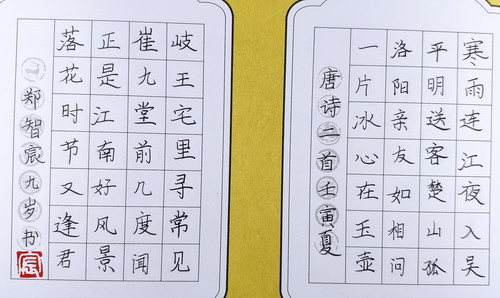 寒雨连江夜入吴
平明送客楚山孤
洛阳亲友如相问
一片冰心在玉壶
唐诗二首壬寅夏
岐王宅里寻常见
崔九堂前几度闻
正是江南好风景
落花时节又逢君
郑智宸九岁书